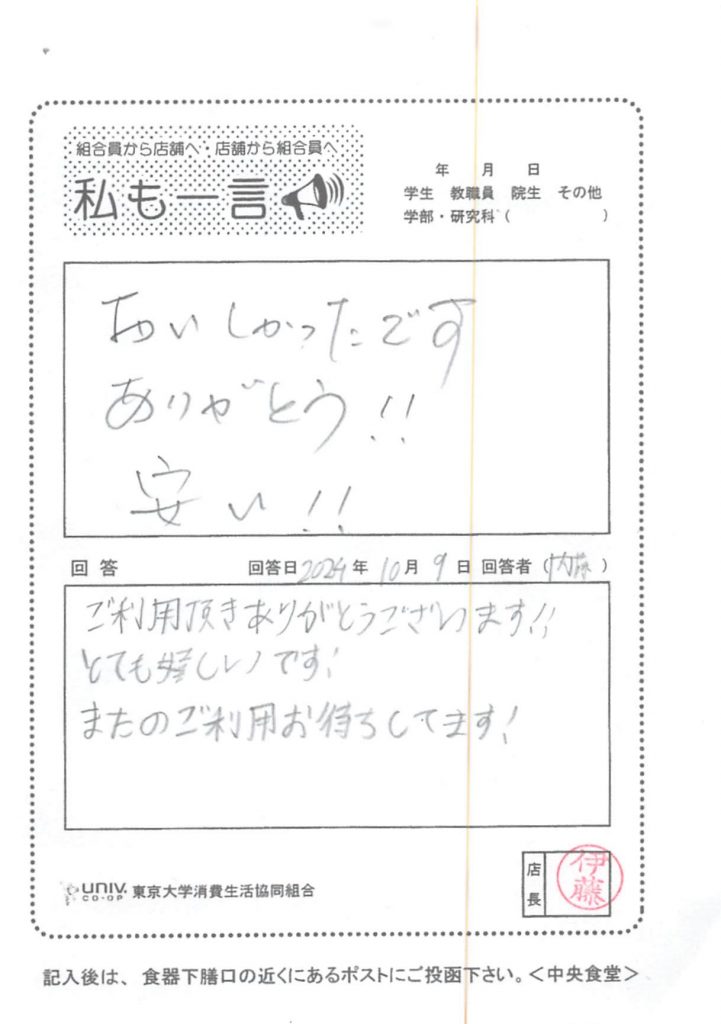 組合員から店舗へ・店舗から組合員へ
私も一言
年 月 日
学生 教職員 院生 その他
学部・研究科( )
おいしかったです
ありがとう!!
安い!!
回答 回答日 2024年 10月 9日 回答者(内藤)
ご利用頂きありがとうございます!!
とても嬉しいです!
またのご利用お待ちしてます!
UNIV. CO-OP 東京大学消費生活協同組合
店長 伊藤
記入後は、食器下膳口の近くにあるポストにご投函下さい。<中央食堂>